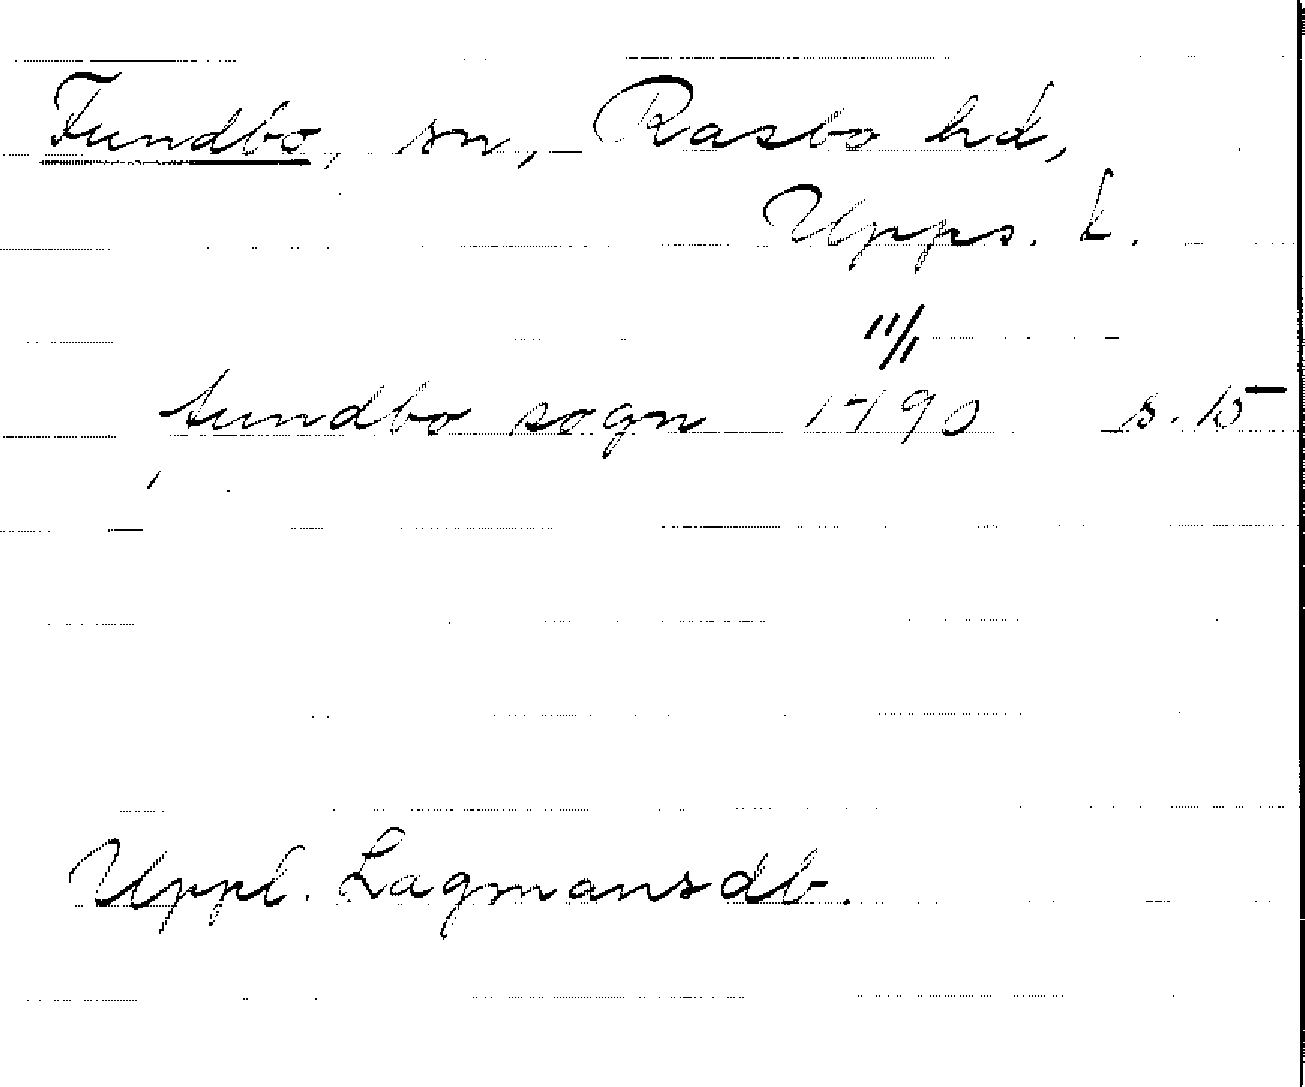 Fundbo, sn, Rasbo hd,
Upps. l.
11/1
fundbo sogn 1490 s. 15
Uppl. Lagmansdb.